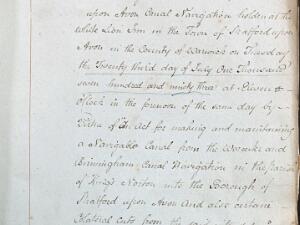 upon Avon Canal Navigation holden at the
White Lion Inn in the Town of Stratford upon
Avon in the County of Warwick on Tuesday
the Twenty third day of July One Thousand
seven hundred and ninety three at Eleven o
Clock in the forenoon of the same day by
Virtue of An Act for making and maintaining
a Navigable Canal from the Worcester and
Birmingham Canal Navigation in the parish
of Kings Norton into the Borough of
Stratford upon Avon And also certain
Collateral Cuts from the said